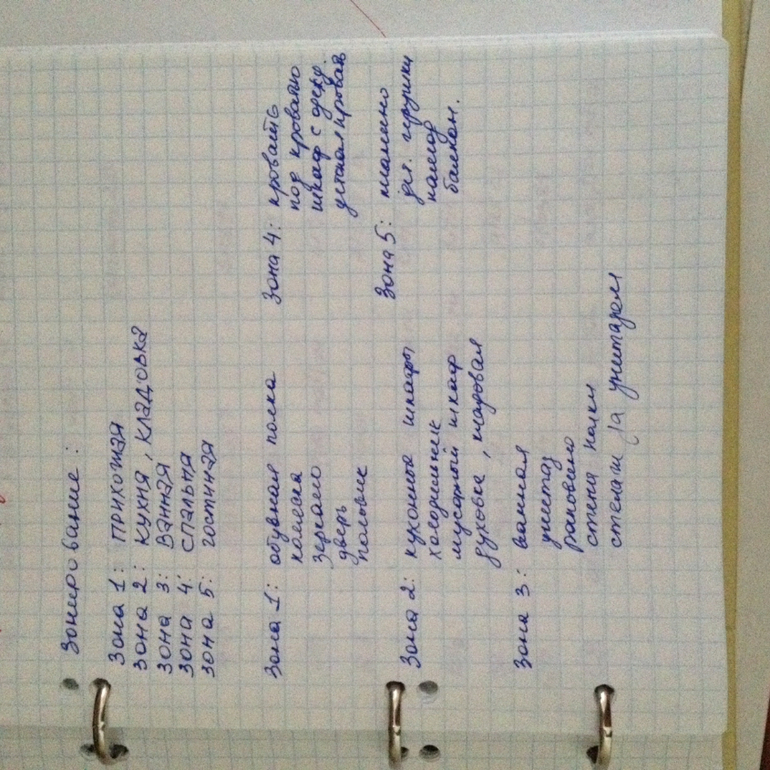 Зонирование:
Зона 1: прихожая
Зона 2: кухня, кладовка
Зона 3: ванная
Зона 4: спальня
Зона 5: гостиная
Зона 1: обувная полка
коляска
зеркало
дверь
половик
Зона 2: кухонные шкафы
холодильник
мусорный шкаф
духовка, кладовая
Зона 3: ванная
унитаз
раковина
стена полки
стеллаж за унитазом
Зона 4: кровать
под кроватью
шкаф с одежд.
Зона 5: пианино
дет. игрушки
комод
балкон.